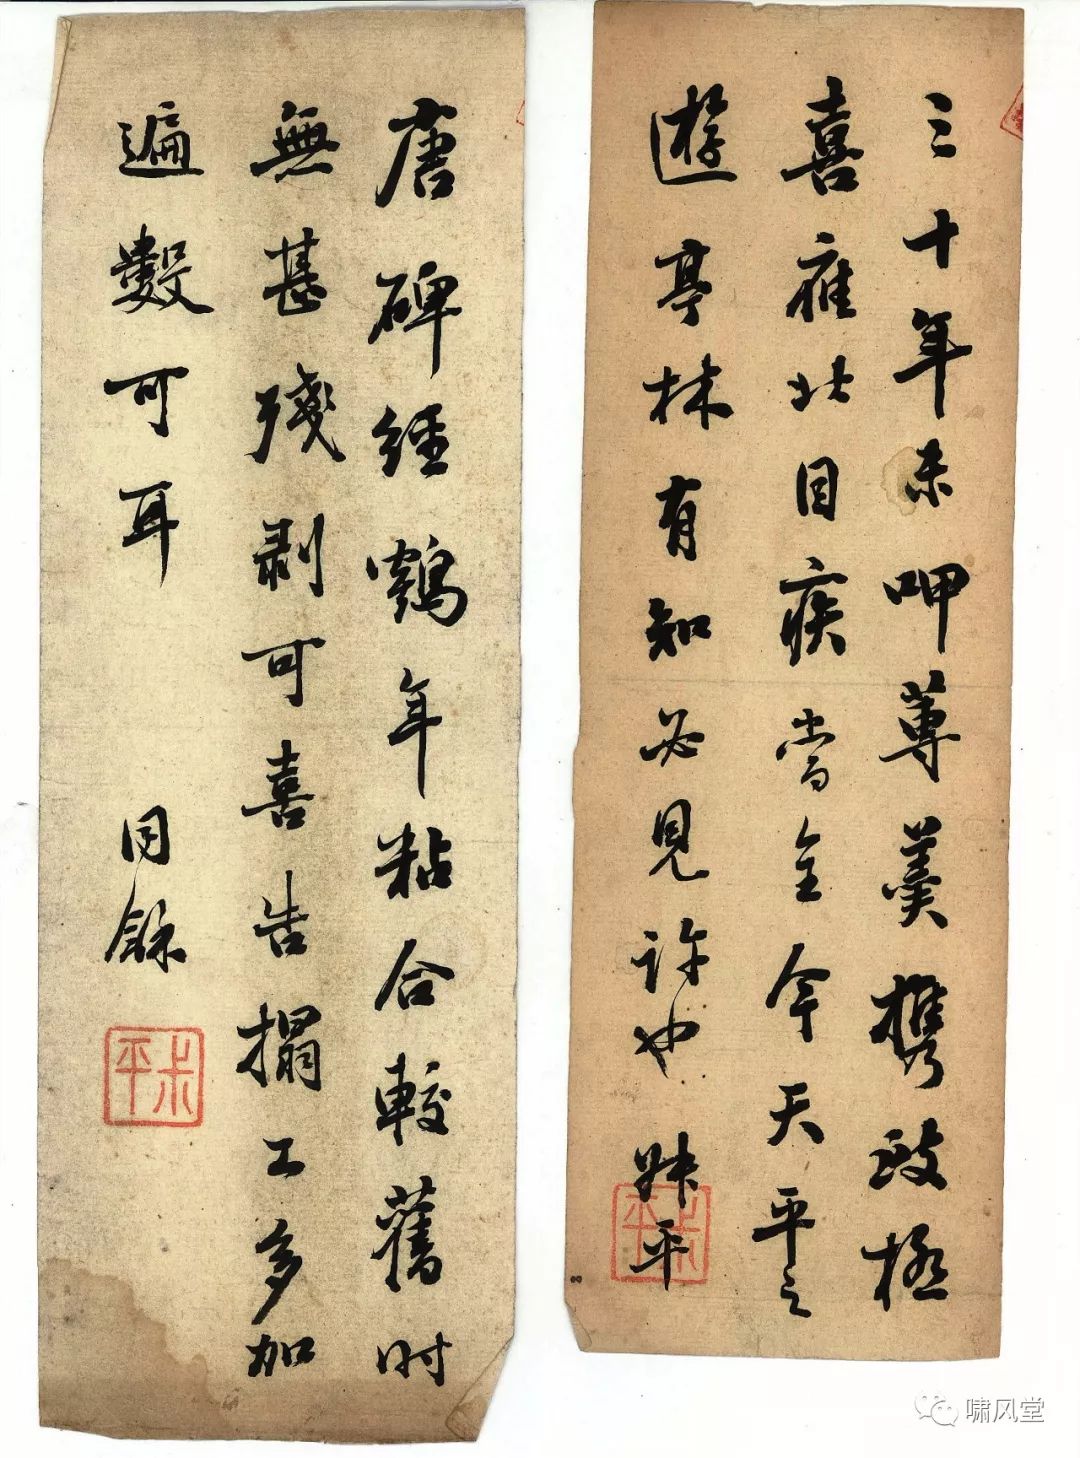 三十年未呷蓴羹携致極
喜此目疾當全今天平之
遊亭林有知必見許也 叔平
叔平
唐碑經鶴年粘合較舊時
無甚殘剥可喜告搨工多加
遍數可耳 同龢
叔平
啸风堂